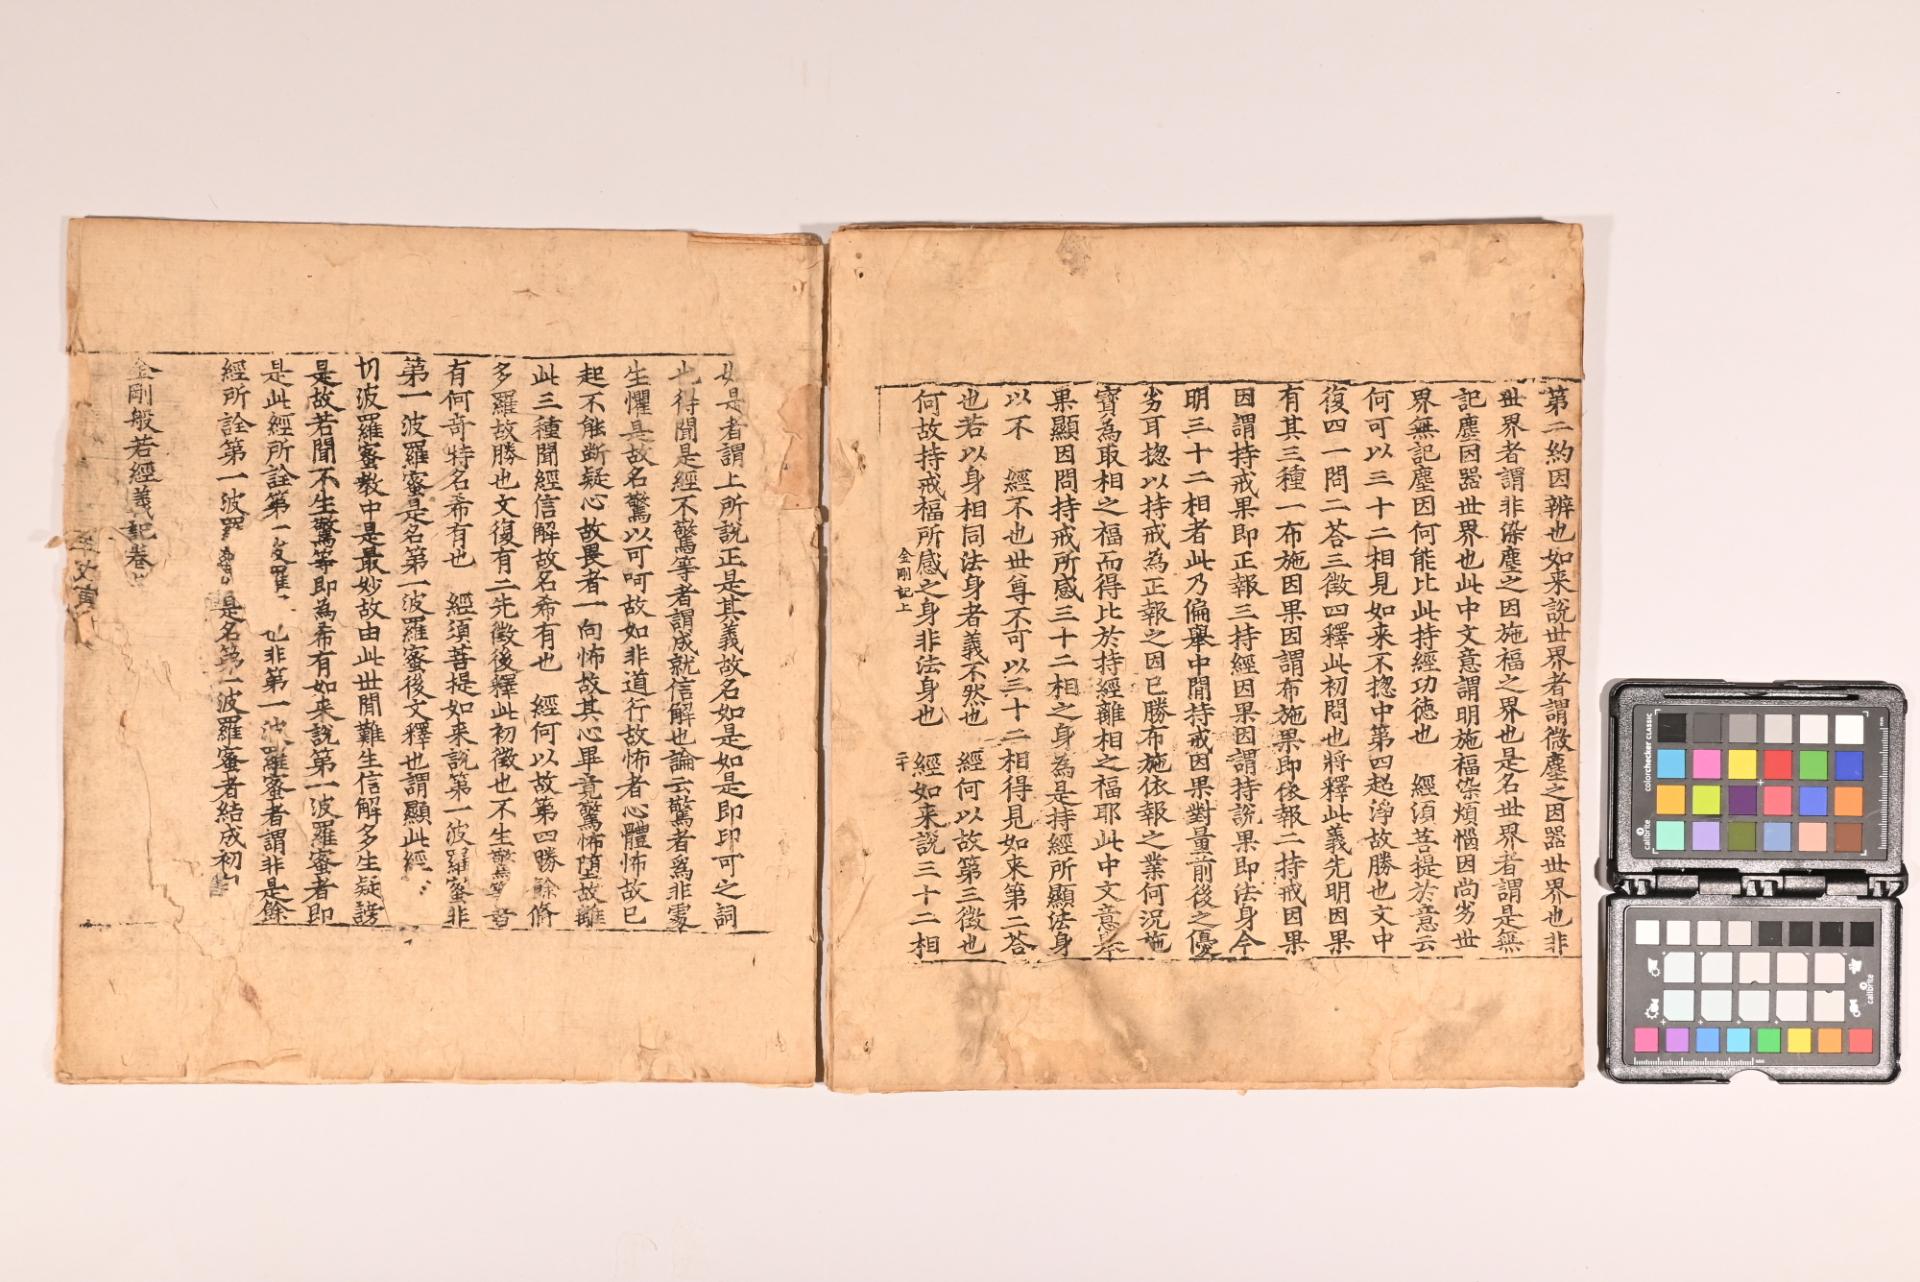 第二約因辨也如来說世界者謂微塵之因器世界也非
世界者謂非染塵之因施福之界也是名世界者謂是無
記塵因器世界也此中文意謂明施福染煩惱因尚劣世
界無記塵因何能比此持經功徳也　經須菩提於意云
何可以三十二相見如来不揔中第四起淨故勝也文中
復四一問二荅三徵四釋此初問也將釋此義先明因果
有其三種一布施因果因謂布施果即依報二持戒因果
因謂持戒果即正報三持經因果因謂持說果即法身今
明三十二相者此乃偏擧中間持戒因果對量前後之優
劣耳揔以持戒為正報之因已勝布施依報之業何況施
寶為取相之福而得比於持經離相之福耶此中文意
果顯因問持戒所感三十二相之身為是持經所顯法身
以不　經不也世尊不可以三十二相得見如来第二荅
也若以身相同法身者義不然也　經何以故第三徵也
何故持戒福所感之身非法身也　經如来說三十二相
金剛記上　二十
如是者謂上所說正是其義故名如是如是即印可之詞
也得聞是經不驚等者謂成就信解也論云驚者為非處
生懼是故名驚以可呵故如非道行故怖者心體怖故已
起不能斷疑心故畏者一向怖故其心畢竟驚怖墮故離
此三種聞經信解故名希有也　經何以故第四勝餘脩
多羅故勝也文復有二先徵後釋此初徵也不生驚等
有何奇特名希有也　經須菩提如来說第一波羅蜜非
第一波羅蜜是名第一波羅蜜後文釋也謂顯此經
切波羅蜜教中是最妙故由此世間難生信解多生疑謗
是故若聞不生驚等即為希有如来說第一波羅蜜者即
是此經所詮第一波羅　也非第一波羅蜜者謂非是餘
經所詮第一波羅　是名第一波羅蜜者結成初
金剛般若經義記卷